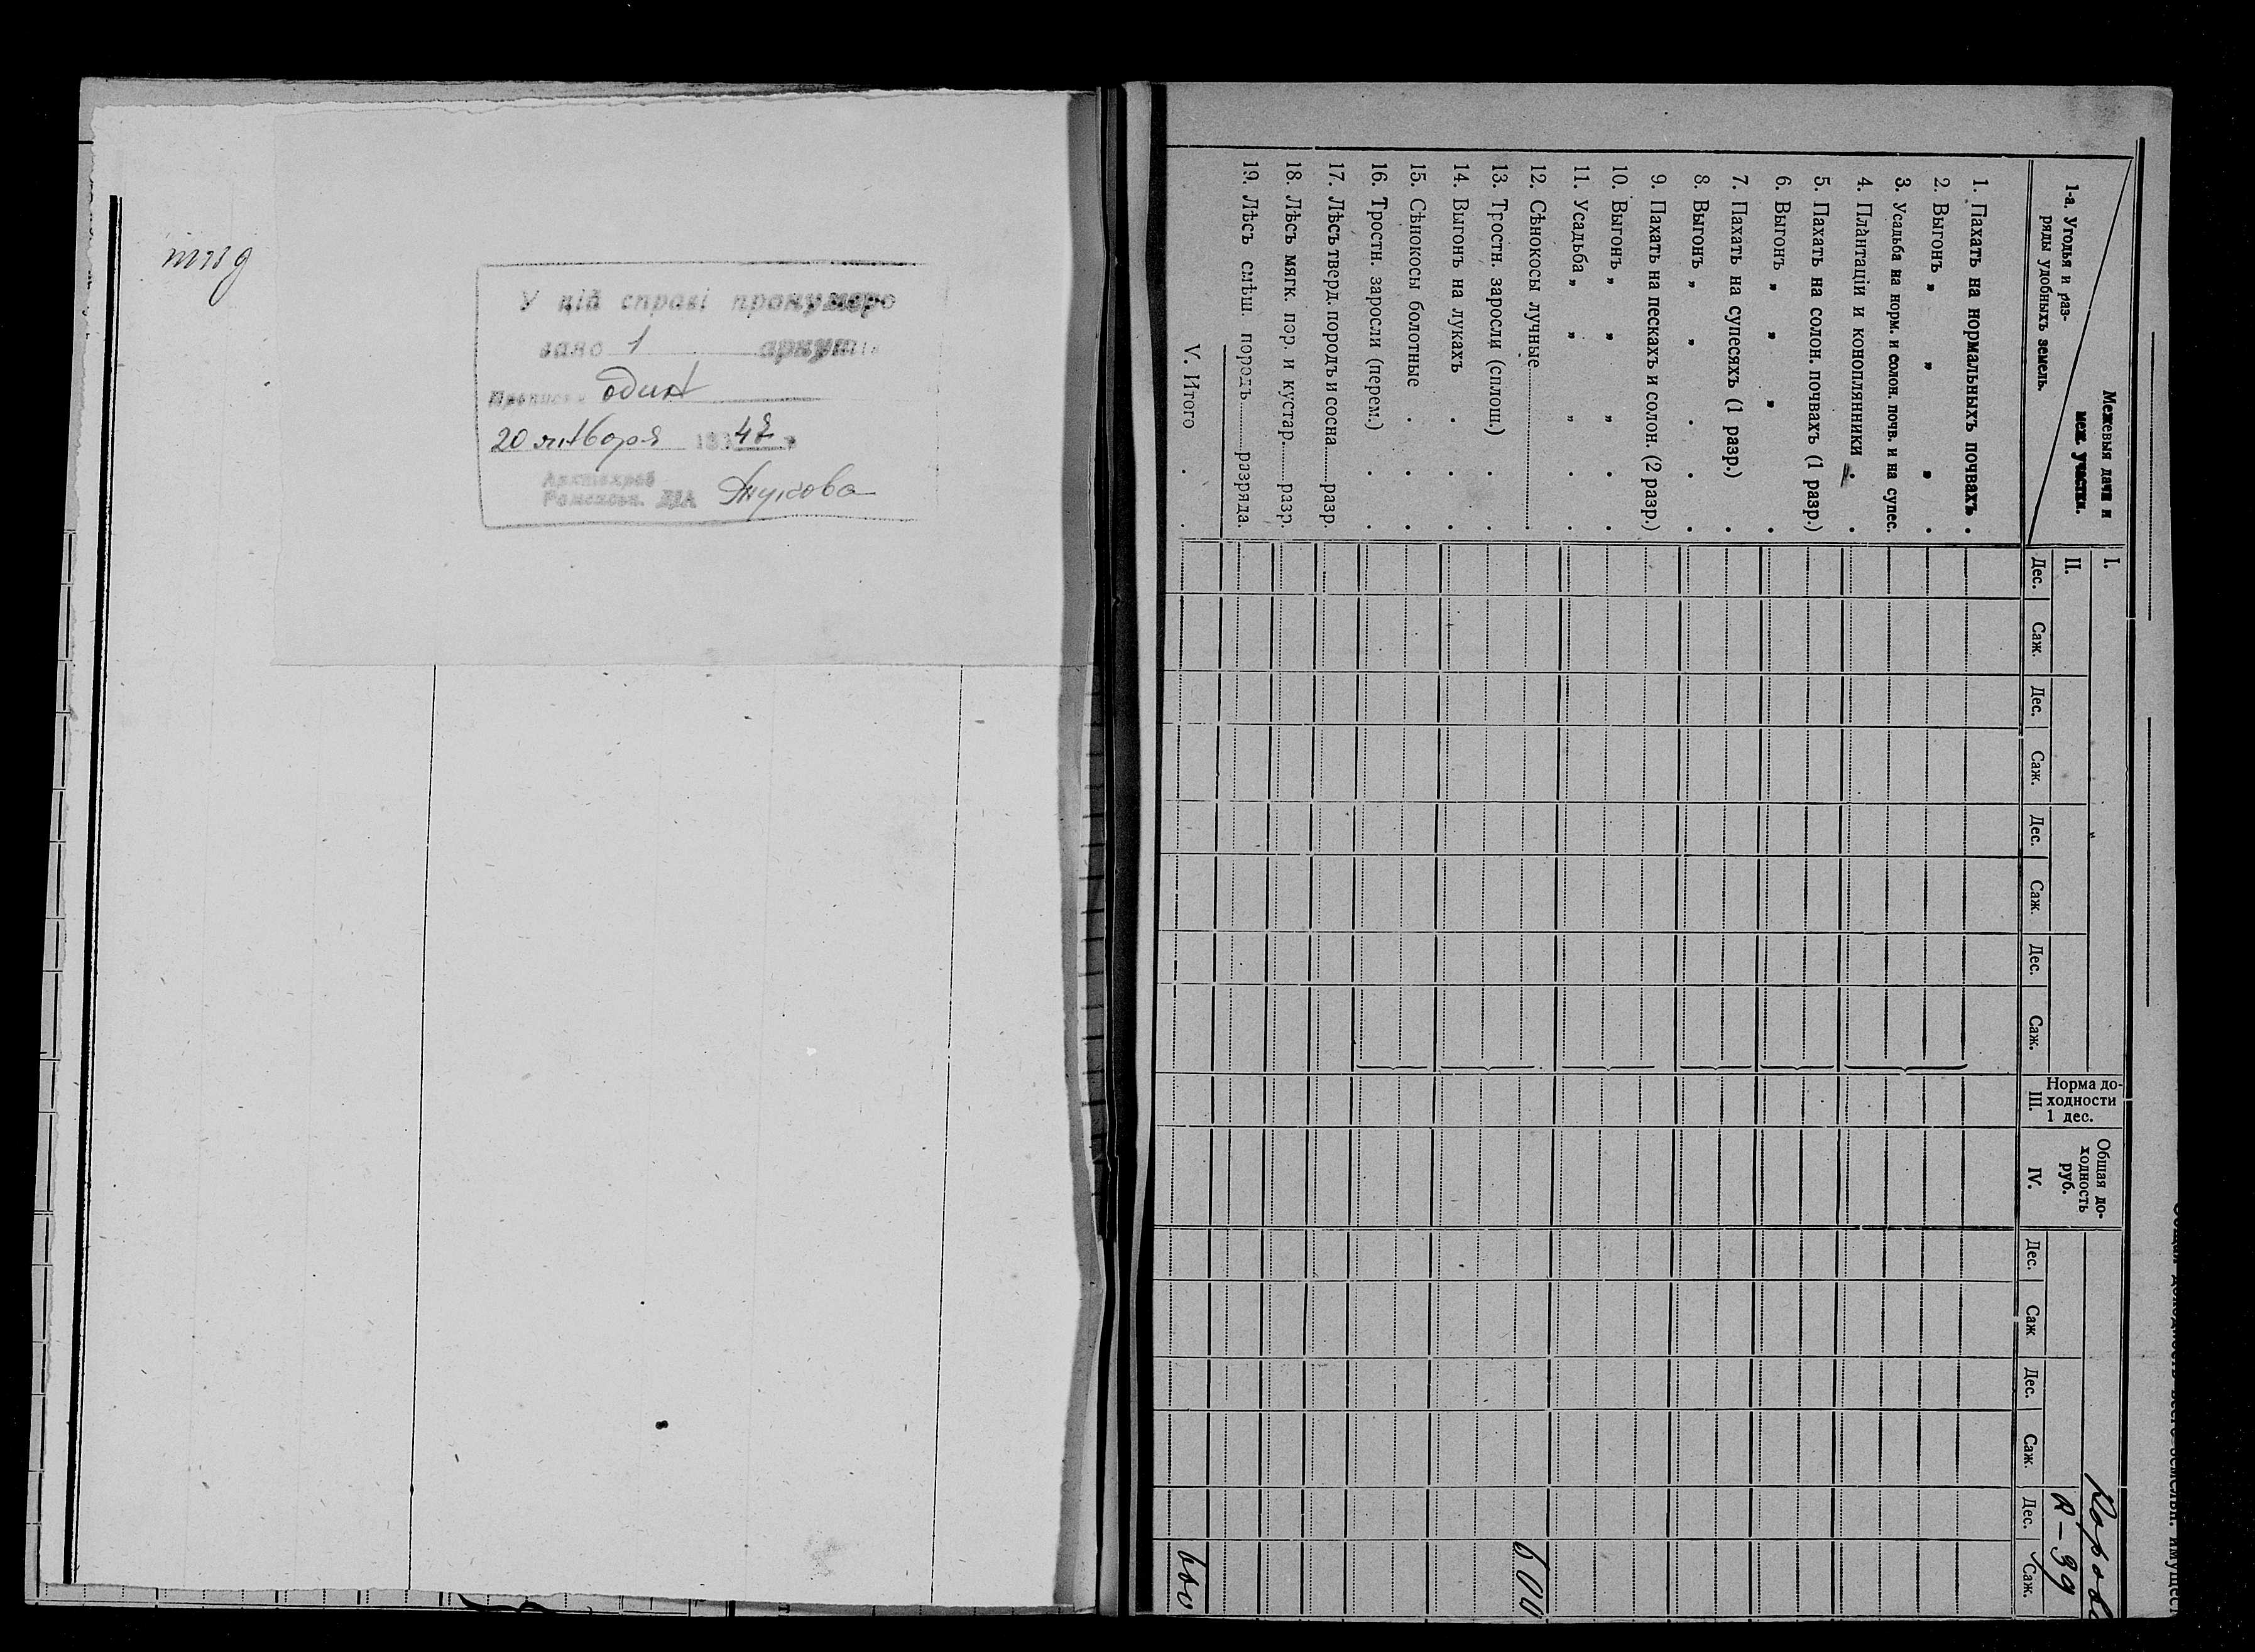 У цій справі пронумеро
вано 1 аркуш
Прописом один
20 января 1947 г
Архтехроб
Роменськ. ДІА
Межевыя дачи и
меж. участки.
1-а. Угодья и раз-
ряды удобныхъ земель.
I.
II.
Дес. Саж. Дес. Саж. Дес. Саж. Дес. Саж.
Норма до-
ходности
1 дес.
III.
Общая до-
ходность
руб.
IV.
Дес. Саж Дес. Саж. Дес. Саж.
R-39
1. Пахать на нормальныхъ почвахъ .
2. Выгонъ „ „ „ .
3. Усадьба на норм. и солон. почв. и на супес.
4. Плантаціи и коноплянники . .
5. Пахать на солон. почвахъ (1 разр.)
6. Выгонъ „ „ „ .
7. Пахать на супесяхъ (1 разр.) .
8. Выгонъ „ „ . . .
9. Пахать на пескахъ и солон. (2 разр.)
10. Выгонъ „ „ „ . .
11. Усадьба „ „ „ . .
12. Сѣнокосы лучные 600
13. Тростн. заросли (сплош.) . .
14. Выгонъ на лукахъ . . .
15. Сѣнокосы болотные . . .
16. Тростн. заросли (перем.) . .
17. Лѣсъ тверд. породъ и сосна разр.
18. Лѣсъ мягк. пор. и кустар. разр.
19. Лѣсъ смѣш. породъ разряда.
V. Итого . . 600